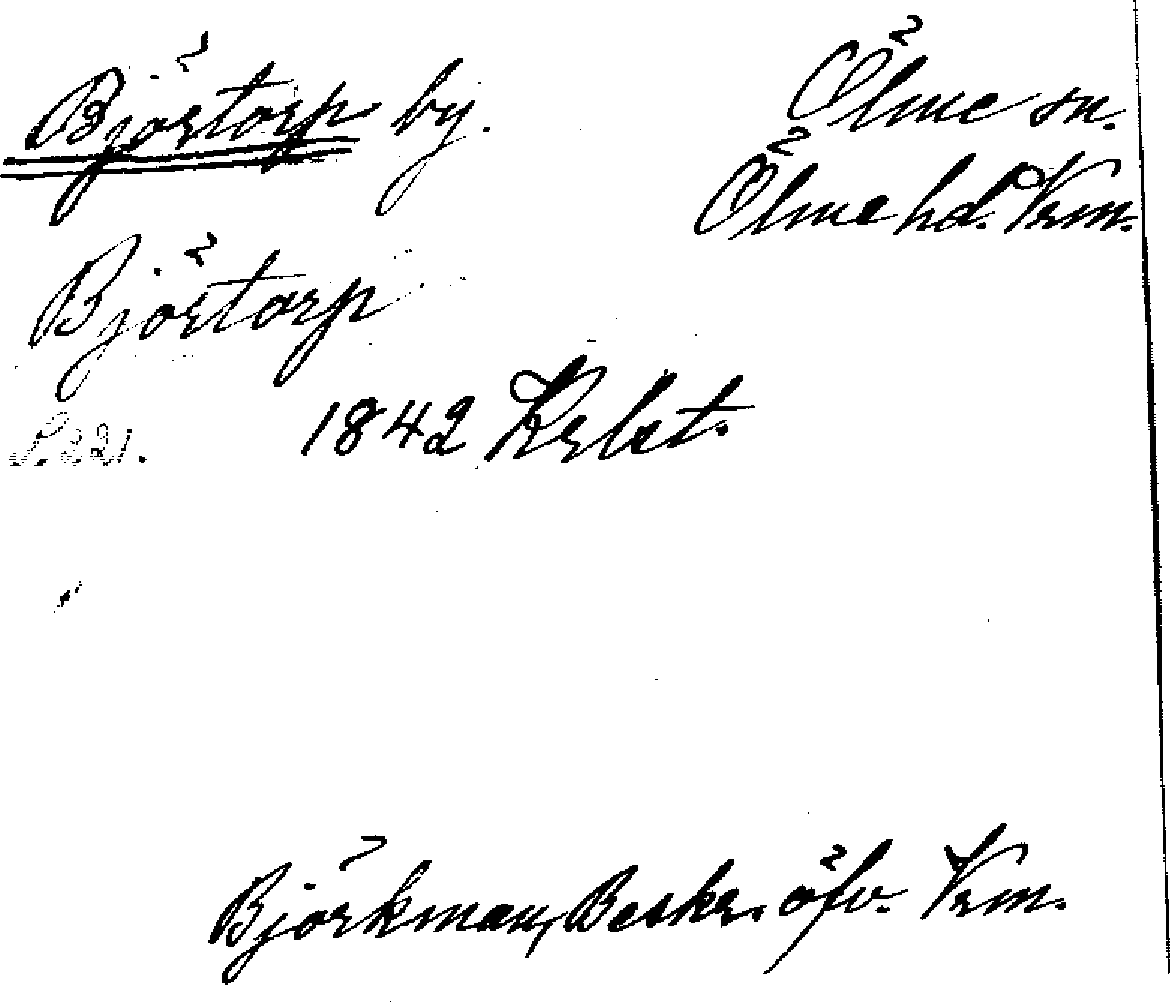 Björtorp by.
Ölme sn.
Ölme hd. Vrm.
Björtorp
S. 221. 1842 Krbet.
Björkman, Beskr. öfv. Vrm.